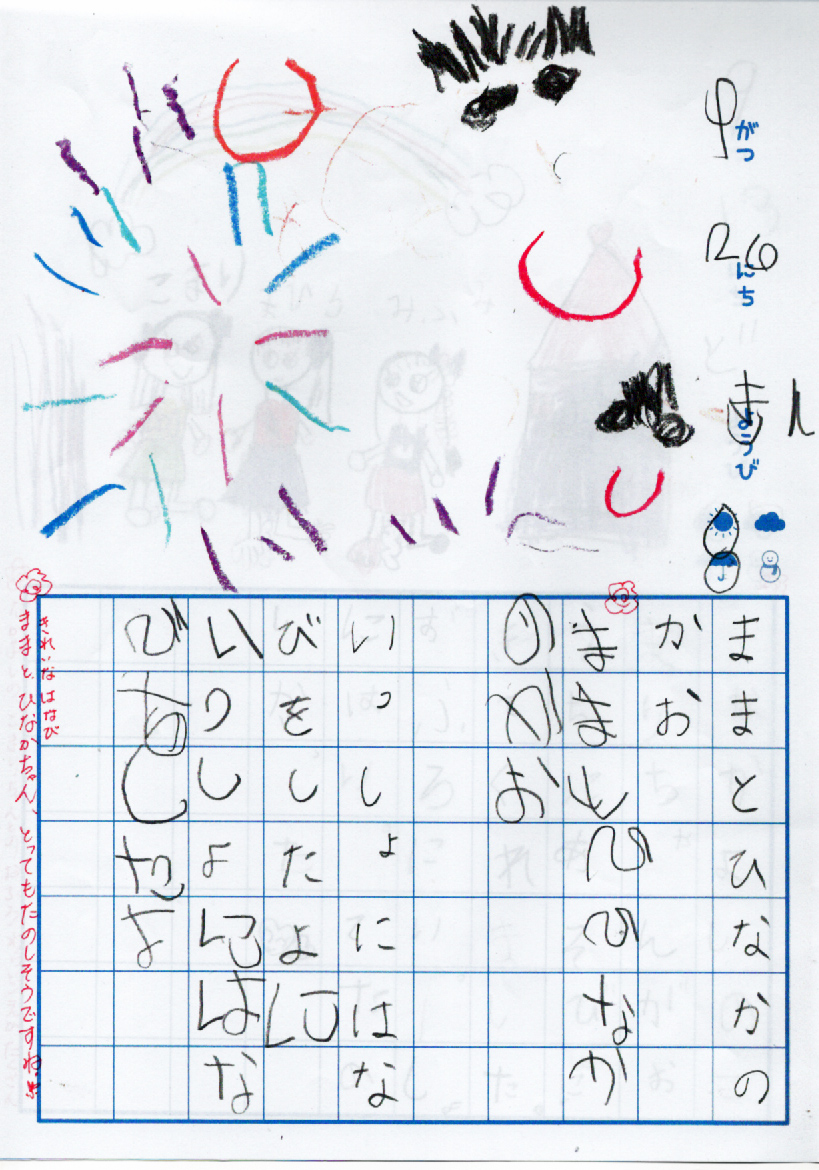 がつ
26にち
ようび
ままとひなかの
かお
ままとひひなか
のかお
いっしょにはな
びをしたよに
いつしよにはな
びをしたよ
きれいなはなび
ままと、ひなかちゃん、とってもたのしそうですね!!